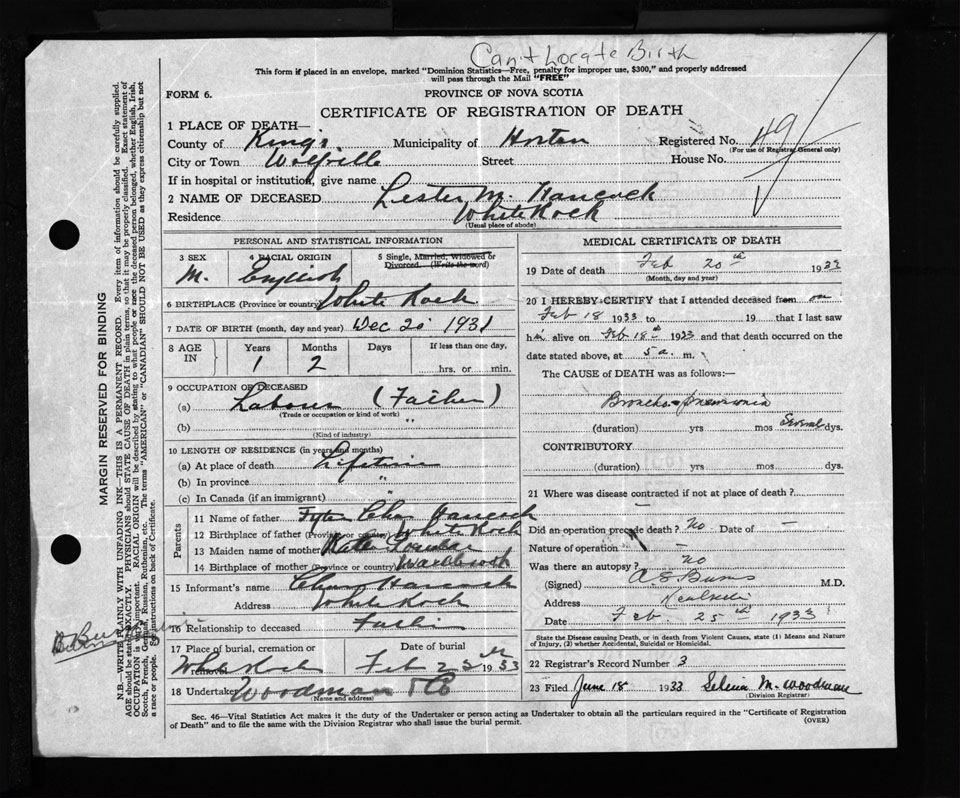 Can't Locate Birth
This form if placed in an envelope, marked "Dominion Statistics—Free, penalty for improper use, $300," and properly addressed
will pass through the Mail "FREE"
FORM 6.
PROVINCE OF NOVA SCOTIA
CERTIFICATE OF REGISTRATION OF DEATH
1 PLACE OF DEATH—
County of Kings Municipality of Horton Registered No. 49
(For use of Registrar General only)
City or Town Wolfville Street House No.
If in hospital or institution, give name
2 NAME OF DECEASED Lester M. Hancock
Residence White Rock
(Usual place of abode)
PERSONAL AND STATISTICAL INFORMATION
3 SEX 4 RACIAL ORIGIN 5 Single, Married, Widowed or
Divorced (Write the word)
M. English
6 BIRTHPLACE (Province or country) White Rock
7 DATE OF BIRTH (month, day and year) Dec 20 1931
8 AGE IN Years Months Days If less than one day,
1 2 hrs. or min.
9 OCCUPATION OF DECEASED
(a) Labour (Father)
(Trade or occupation or kind of work)
(b) "
(Kind of industry)
10 LENGTH OF RESIDENCE (in years and months)
(a) At place of death Lifetime
(b) In province "
(c) In Canada (if an immigrant)
Parents
11 Name of father Hancock
12 Birthplace of father (Province or country) White Rock
13 Maiden name of mother
14 Birthplace of mother (Province or country)
15 Informant's name Hancock
Address White Rock
16 Relationship to deceased Father
17 Place of burial, cremation or removal Date of burial
White Rock Feb 1933
18 Undertaker Woodman & Co
(Name and address)
MEDICAL CERTIFICATE OF DEATH
19 Date of death Feb 20th 1933
(Month, day and year)
20 I HEREBY CERTIFY that I attended deceased from on
Feb 18 1933 to 19 that I last saw
him alive on Feb 18th 1933 and that death occurred on the
date stated above, at 5 a. m.
The CAUSE of DEATH was as follows:—
Broncho-pneumonia
(duration) yrs mos Several dys.
CONTRIBUTORY
(duration) yrs mos dys.
21 Where was disease contracted if not at place of death?
Did an operation precede death? No Date of —
Nature of operation —
Was there an autopsy? no
(Signed) M.D.
Address
Date Feb. 25th 1933
State the Disease causing Death, or in death from Violent Causes, state (1) Means and Nature
of Injury, (2) whether Accidental, Suicidal or Homicidal.
22 Registrar's Record Number 3
23 Filed June 18 1933 M. Woodman
(Division Registrar)
Sec. 46—Vital Statistics Act makes it the duty of the Undertaker or person acting as Undertaker to obtain all the particulars required in the "Certificate of Registration
of Death" and to file the same with the Division Registrar who shall issue the burial permit. (OVER)
MARGIN RESERVED FOR BINDING
N.B.—WRITE PLAINLY WITH UNFADING INK—THIS IS A PERMANENT RECORD. Every item of information should be carefully supplied.
AGE should be stated EXACTLY. PHYSICIANS should STATE CAUSE OF DEATH in plain terms, so that it may be properly classified. Exact statement of
OCCUPATION is very important. RACIAL ORIGIN will be described by stating to what people or race the deceased person belonged, whether English, Irish,
Scotch, French, German, Russian, Ruthenian, etc. The terms "AMERICAN" or "CANADIAN" SHOULD NOT BE USED as they express citizenship but not
a race or people. See instructions on back of Certificate.